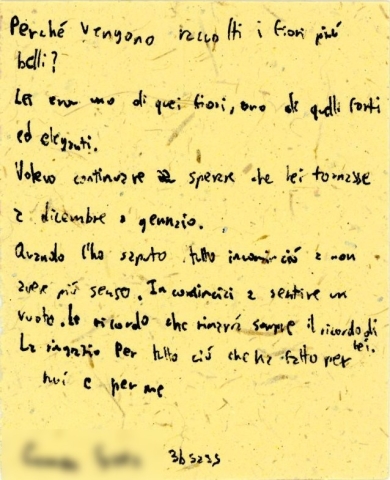 Perché vengono raccolti i fiori più
belli?
Lei era uno di quei fiori, uno di quelli forti
ed eleganti.
Volevo continuare a sperare che lei tornasse
a dicembre o gennaio.
Quando l'ho saputo tutto incominciò a non
aver più senso. Incominciai a sentire un
vuoto. Le ricordo che rimarrà sempre il ricordo di
lei.
La ringrazio per tutto ciò che ha fatto per
noi e per me
3b sa